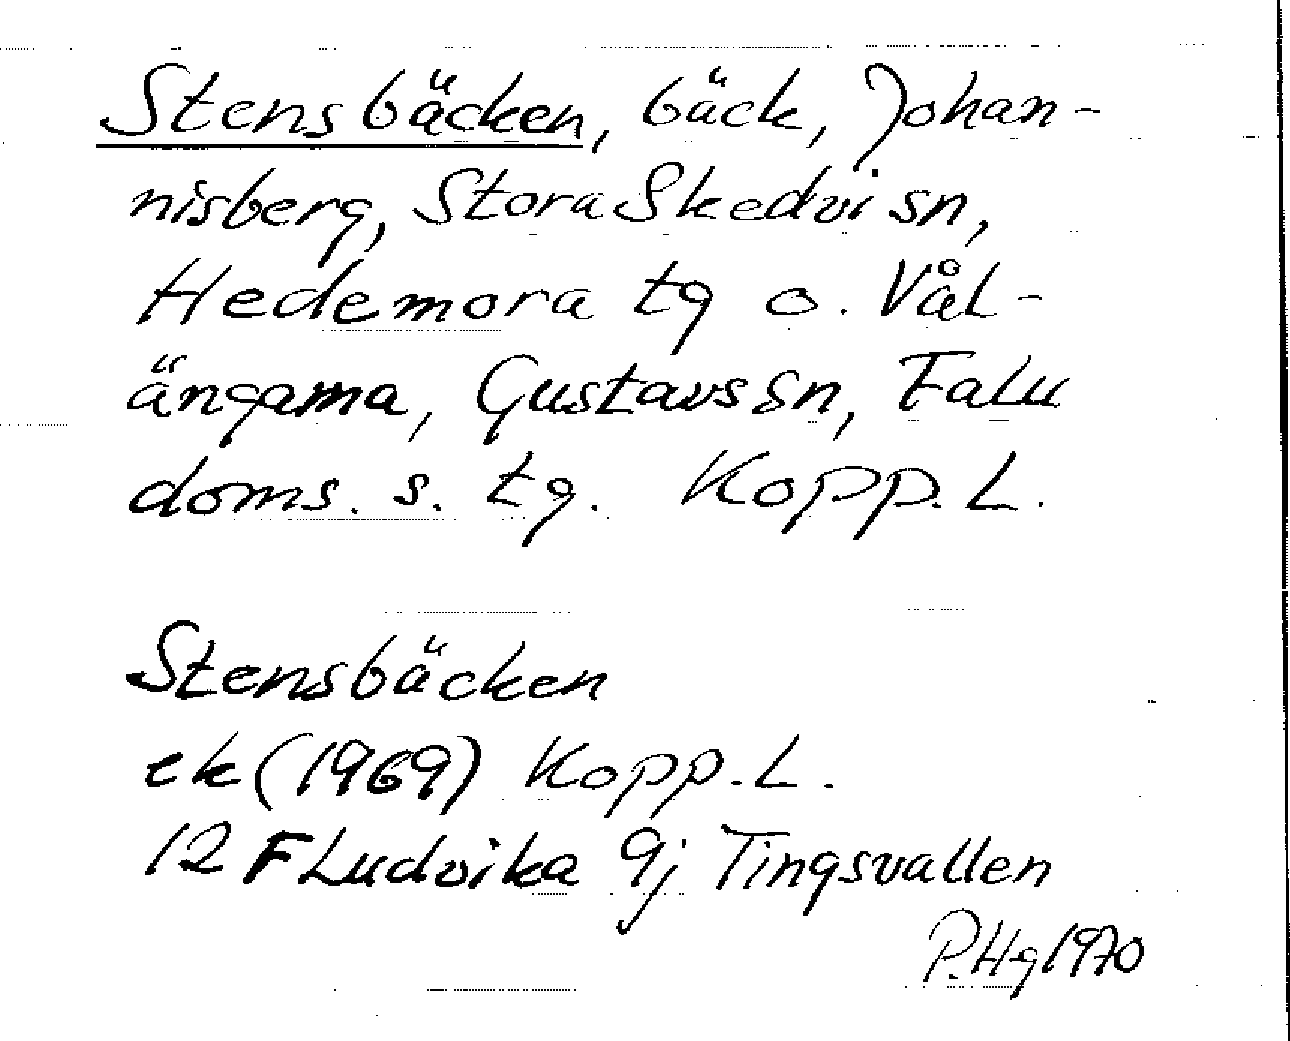 Stensbäcken, bäck, Johan-
nisberg, Stora Skedvi sn,
Hedemora tg o. Vål-
ängarna, Gustavs sn, Falu
doms. s. tg. Kopp. L.
Stensbäcken
ek (1969) Kopp. L.
12 F Ludvika 9j Tingsvallen
P. Hg 1970